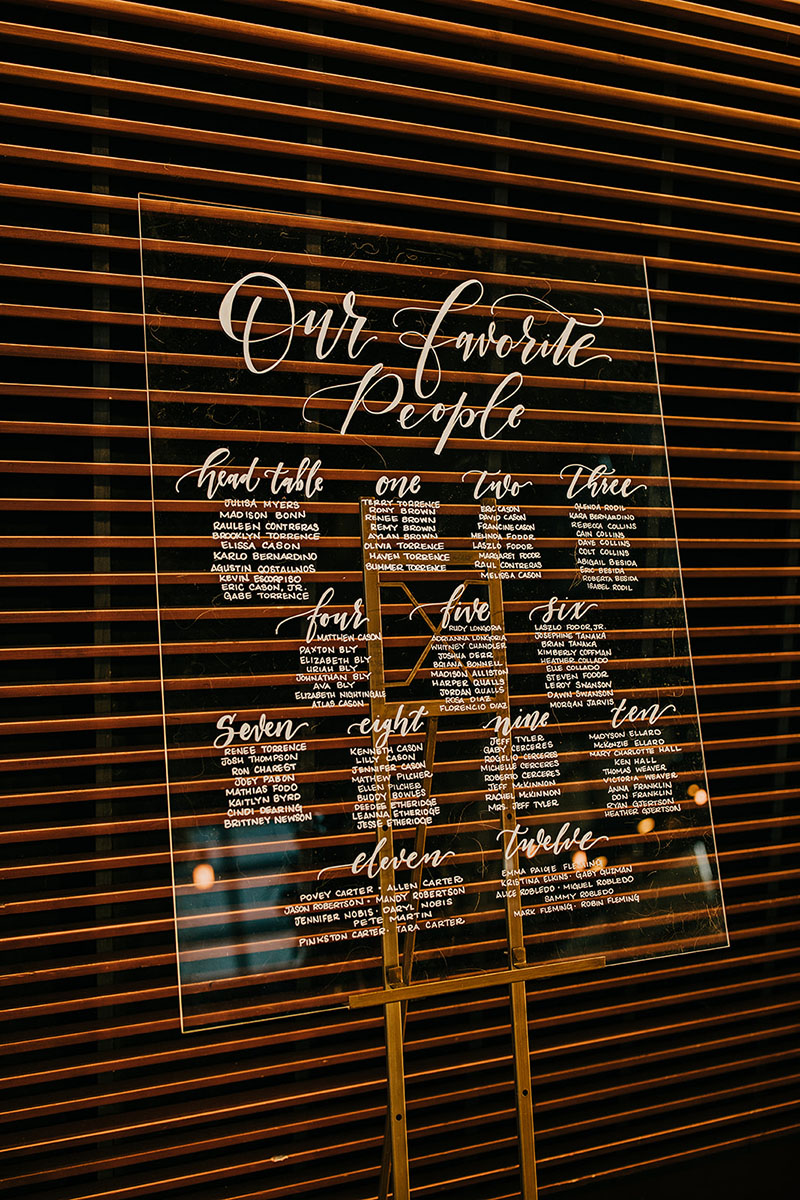 Our Favorite
People
head table
JULISA MYERS
MADISON BONN
RAULEEN CONTRERAS
BROOKLYN TORRENCE
ELISSA CASON
KARLO BERNARDINO
AGUSTIN COSTALLNOS
KEVIN ESCORPISO
ERIC CASON, JR.
GABE TORRENCE
one
TERRY TORRENCE
RONY BROWN
RENEE BROWN
REMY BROWN
AYLAN BROWN
OLIVIA TORRENCE
HAVEN TORRENCE
SUMMER TORRENCE
two
ERIC CASON
DAVID CASON
FRANCINE CASON
MELINDA FODOR
LASZLO FODOR
MARGARET FODOR
RAUL CONTRERAS
MELISSA CASON
Three
GLENDA RODIL
KARA BERNARDINO
REBECCA COLLINS
CAIN COLLINS
DAVE COLLINS
COLT COLLINS
ABIGAIL BESIDA
ERIC BESIDA
ROBERTA BESIDA
ISABEL RODIL
four
MATTHEW CASON
PAXTON BLY
ELIZABETH BLY
URIAH BLY
JOHNATHAN BLY
AVA BLY
ELIZABETH NIGHTINGALE
ATLAS CASON
five
RUDY LONGORIA
ADRIANNA LONGORIA
WHITNEY CHANDLER
JOSHUA DERR
BRIANA BONNELL
MADISON ALLISTON
HARPER QUALLS
JORDAN QUALLS
ROSA DIAZ
FLORENCIO DIAZ
six
LASZLO FODOR, JR.
JOSEPHINE TANAKA
BRIAN TANAKA
KIMBERLY COFFMAN
HEATHER COLLADO
ELLE COLLADO
STEVEN FODOR
LEROY SWANSON
DAWN SWANSON
MORGAN JARVIS
Seven
RENEE TORRENCE
JOSH THOMPSON
RON CHAREST
JOEY PABON
MATHIAS FODÓ
KAITLYN BYRD
CINDI DEARING
BRITTNEY NEWSON
eight
KENNETH CASON
LILLY CASON
JENNIFER CASON
MATHEW PILCHER
ELLEN PILCHER
BUDDY BOWLES
DEEDEE ETHERIDGE
LEANNA ETHERIDGE
JESSE ETHERIDGE
nine
JEFF TYLER
GABY CERCERES
ROGELIO CERCERES
MICHELLE CERCERES
ROBERTO CERCERES
JEFF MCKINNON
RACHEL MCKINNON
MRS. JEFF TYLER
ten
MADYSON ELLARD
MCKENZIE ELLARD
MARY CHARLOTTE HALL
KEN HALL
THOMAS WEAVER
VICTORIA WEAVER
ANNA FRANKLIN
DON FRANKLIN
RYAN GJERTSON
HEATHER GJERTSON
eleven
POVEY CARTER · ALLEN CARTER
JASON ROBERTSON · MANDY ROBERTSON
JENNIFER NOBIS · DARYL NOBIS
PETE MARTIN
PINKSTON CARTER · TARA CARTER
twelve
EMMA PAIGE FLEMING
KRISTINA ELKINS · GABY GUZMAN
ALICE ROBLEDO · MIGUEL ROBLEDO
SAMMY ROBLEDO
MARK FLEMING · ROBIN FLEMING